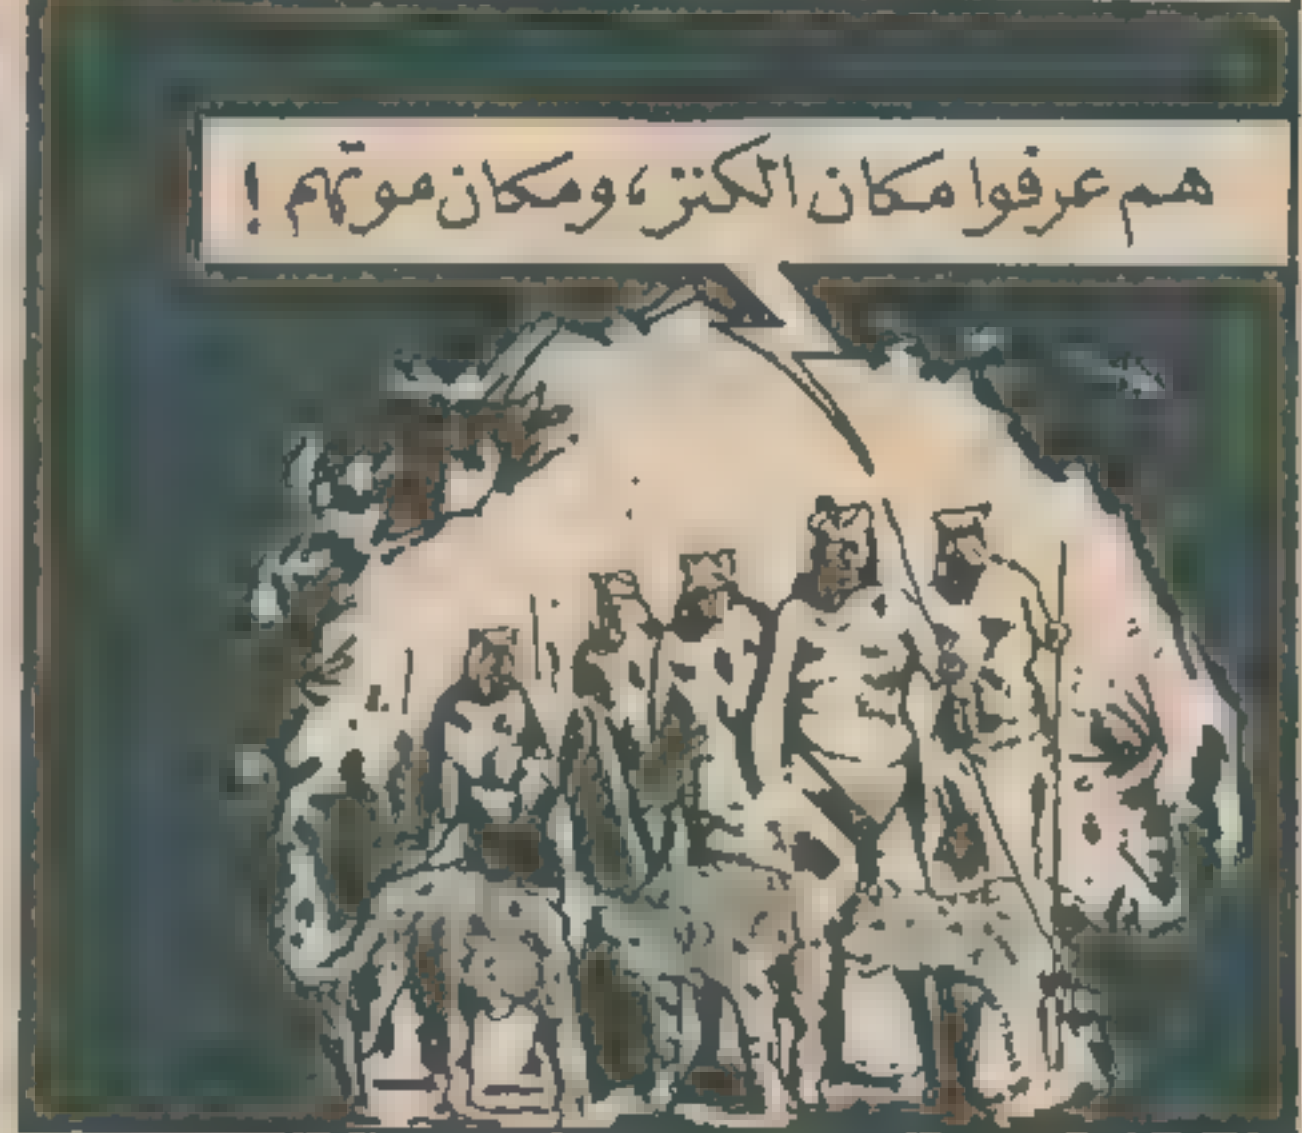 هم عرفوا مكان الكنز، ومكان موتهم !